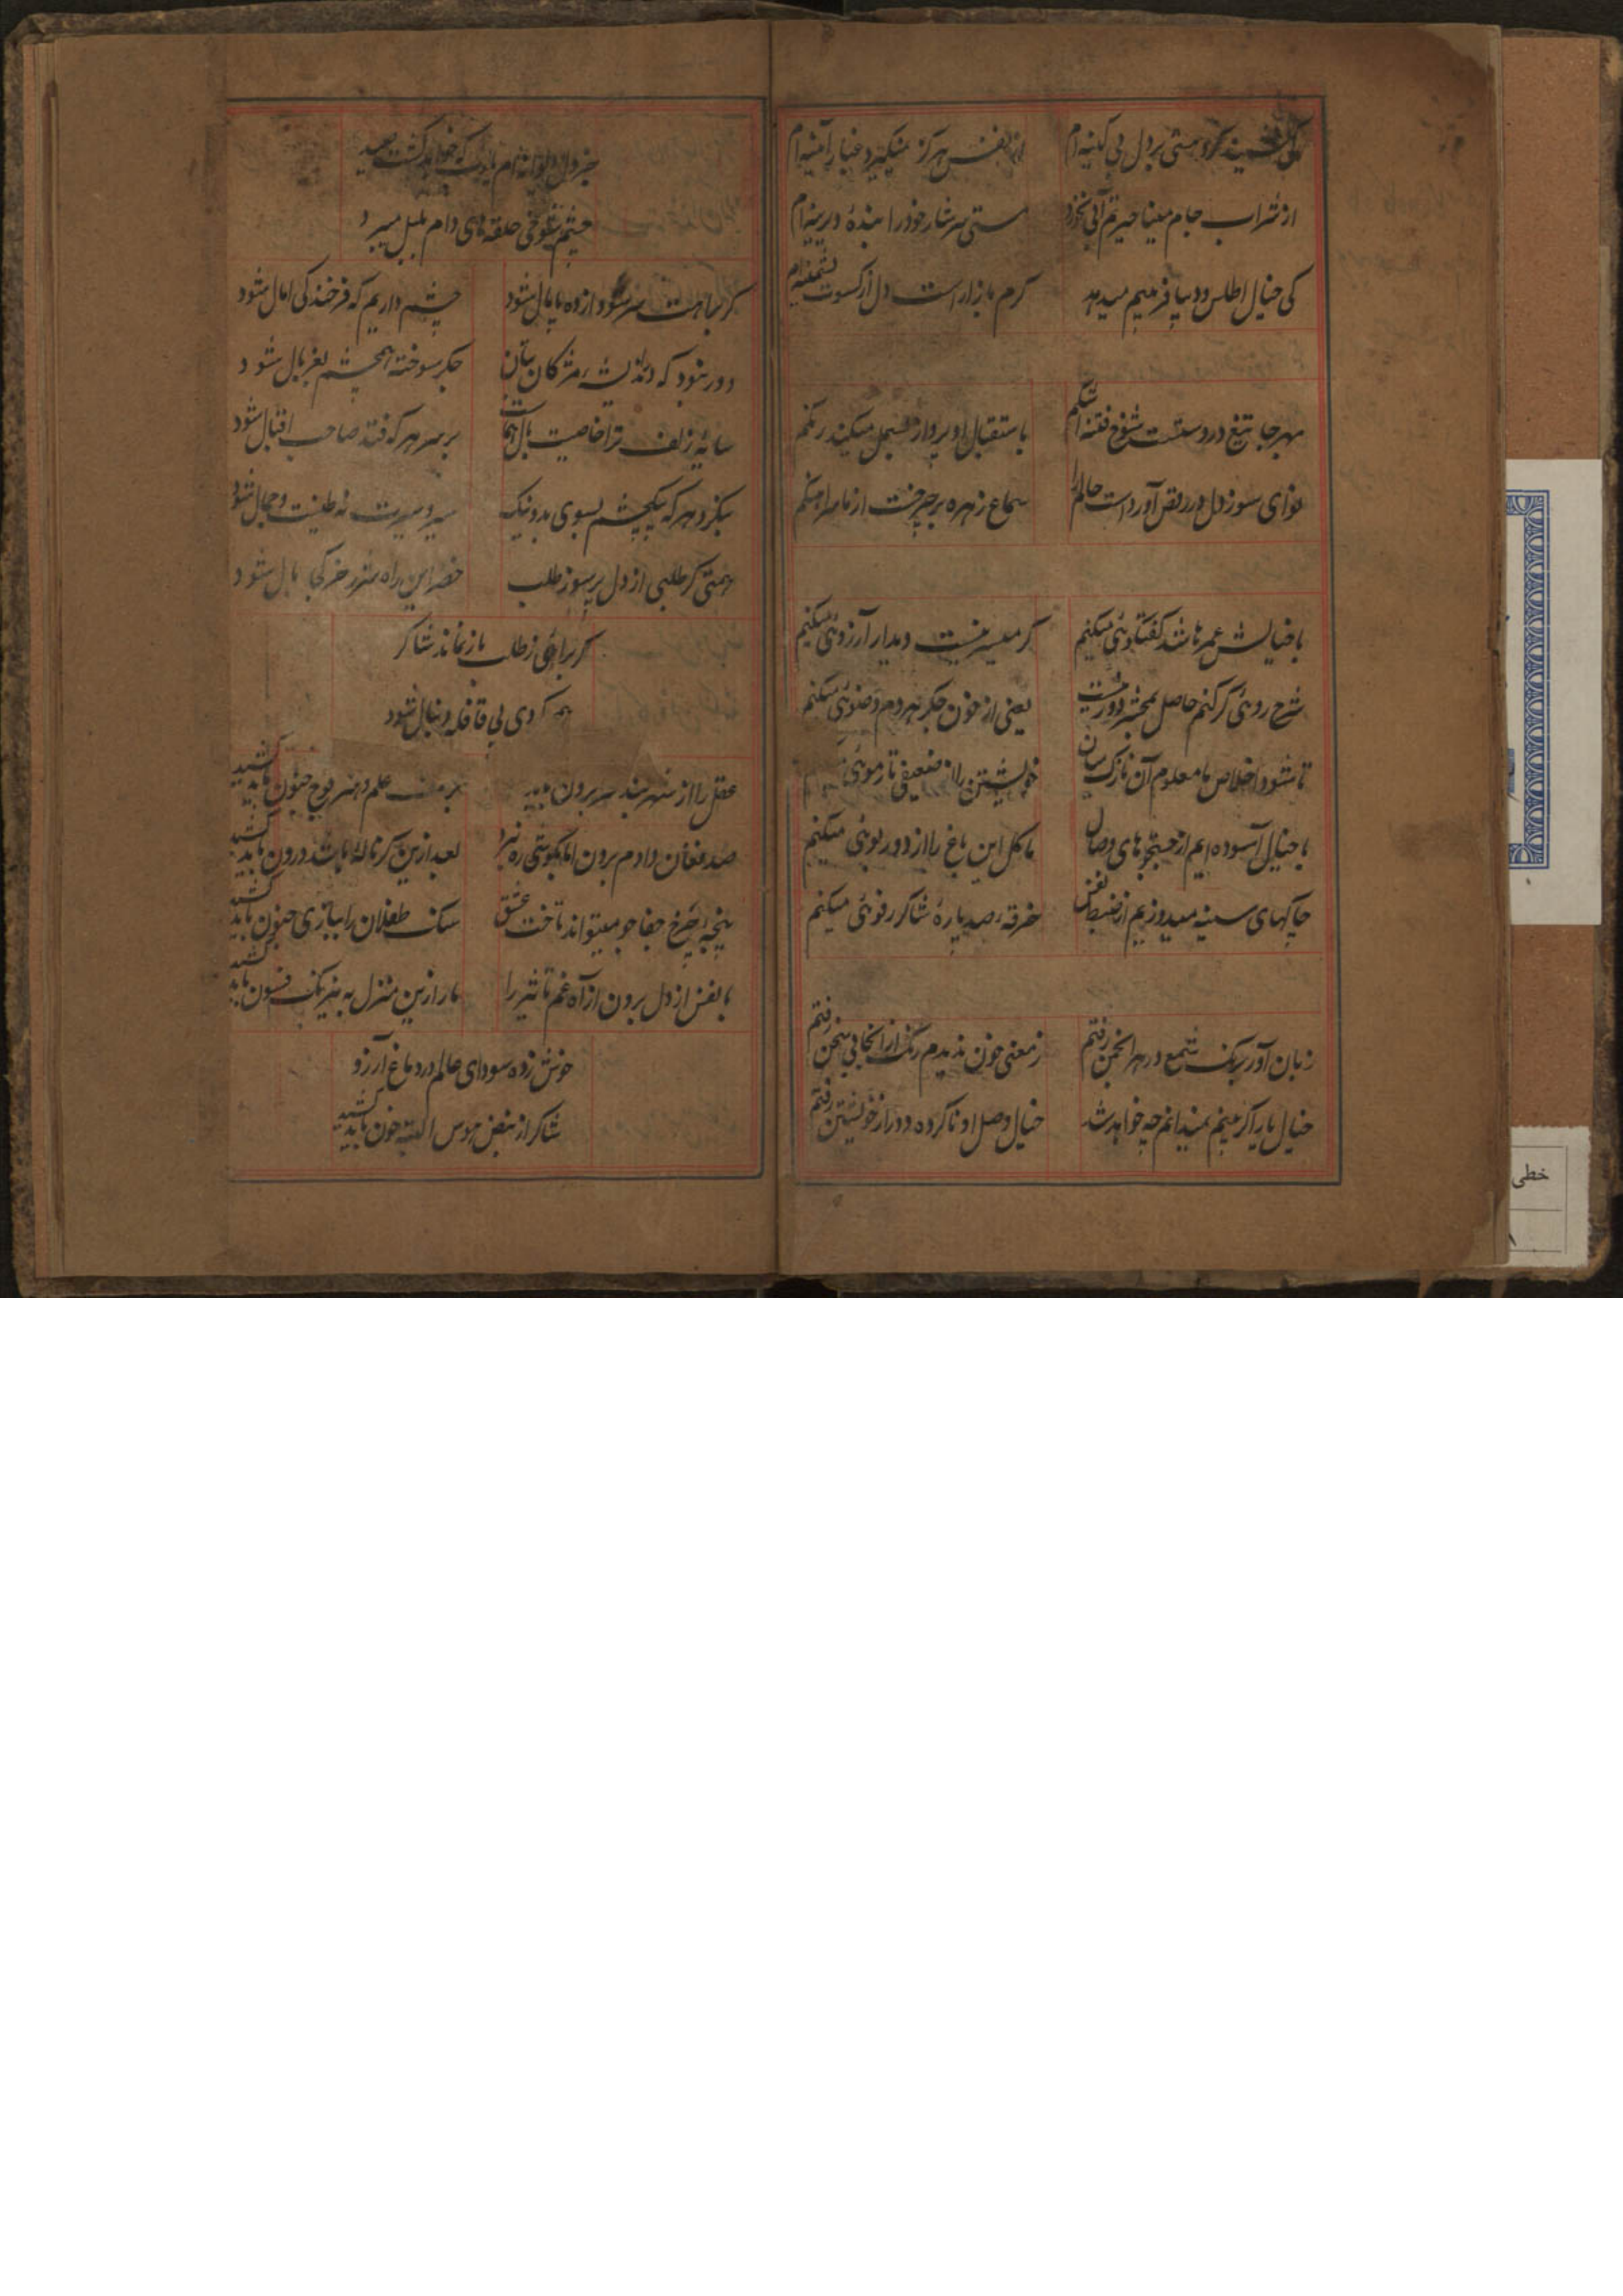 هستی بر دل بی کینه ام
از نفس هرگز نمیگیرد غبار آئینه ام
از شراب جام مینا حیرتم آبی نخورد
مستی سرشار خود را بندهٔ دیرینه ام
کی خیال اطلس و دیبا فریبم میدهد
گرم بازار است دل از کسوت پشمینه ام
بهر جا تیغ در دستست شوخ فتنه
باستقبال او پرواز بسمل میکند رنگم
نوای سوز دل در رقص آورد است عالم را
سماع زهره بر چرخست از
با خیالش عمر باشد گفتگوئی میکنیم
گر میسر نیست دیدار آرزوئی میکنیم
شرح روئی گر کنم حاصل
یعنی از خون جگر هر دم وضوئی میکنم
تا شود اخلاص ما معلوم آن نازک میان
خویشتن را از ضعیفی تار موئی
با خیال آسوده ایم از جستجوهای وصال
ما گل این باغ را از دور بوئی میکنیم
چاکهای سینه میدوزیم از ضبط نفس
خرقهٔ صد پارهٔ شاکر رفوئی میکنم
زبان آور برنگ شمع در هر انجمن رفتم
ز معنی چون ندیدم رنگ از آنجا بی سخن رفتم
خیال یار اگر بینم نمیدانم چه خواهد شد
خیال وصل او ناکرده دور از خویشتن رفتم
جز دل دیوانه ام
چشم شوخی حلقه های دام بلبل میبرد
گر براهت سر سودازده پامال شود
چشم داریم که فرخندگی امال شود
دور نبود که ز اندیشهٔ مژگان بتان
جگر سوخته همچشم بغربال شود
سایهٔ زلف ترا خاصیت بال هماست
بر سر هر که فتد صاحب اقبال شود
بنگرد هر که بیکچشم بسوی بد و نیک
همتی گر طلبی از دل پرسوز طلب
خضر این راه
گر براهی ز طلب باز نماند شاکر
بی قافله دنبال شود
عقل را از شهر بند سر برون
علم و هنر فوج جنون باید کشید
صد فغان دادم برون اما بگوشی ره نبرد
بعد ازین گر ناله باشد درون باید کشید
پنجهٔ چرخ جفاجو میتواند تافت عشق
سنگ طفلان را ببازی جنون باید کشید
با نفس از دل برون از آه غم تاثیر را
بار ازین منزل به نیرنگ فسون باید کشید
جوش زده سودای عالم در دماغ آرزو
شاکر از نبض هوس البته خون باید کشید
خطی